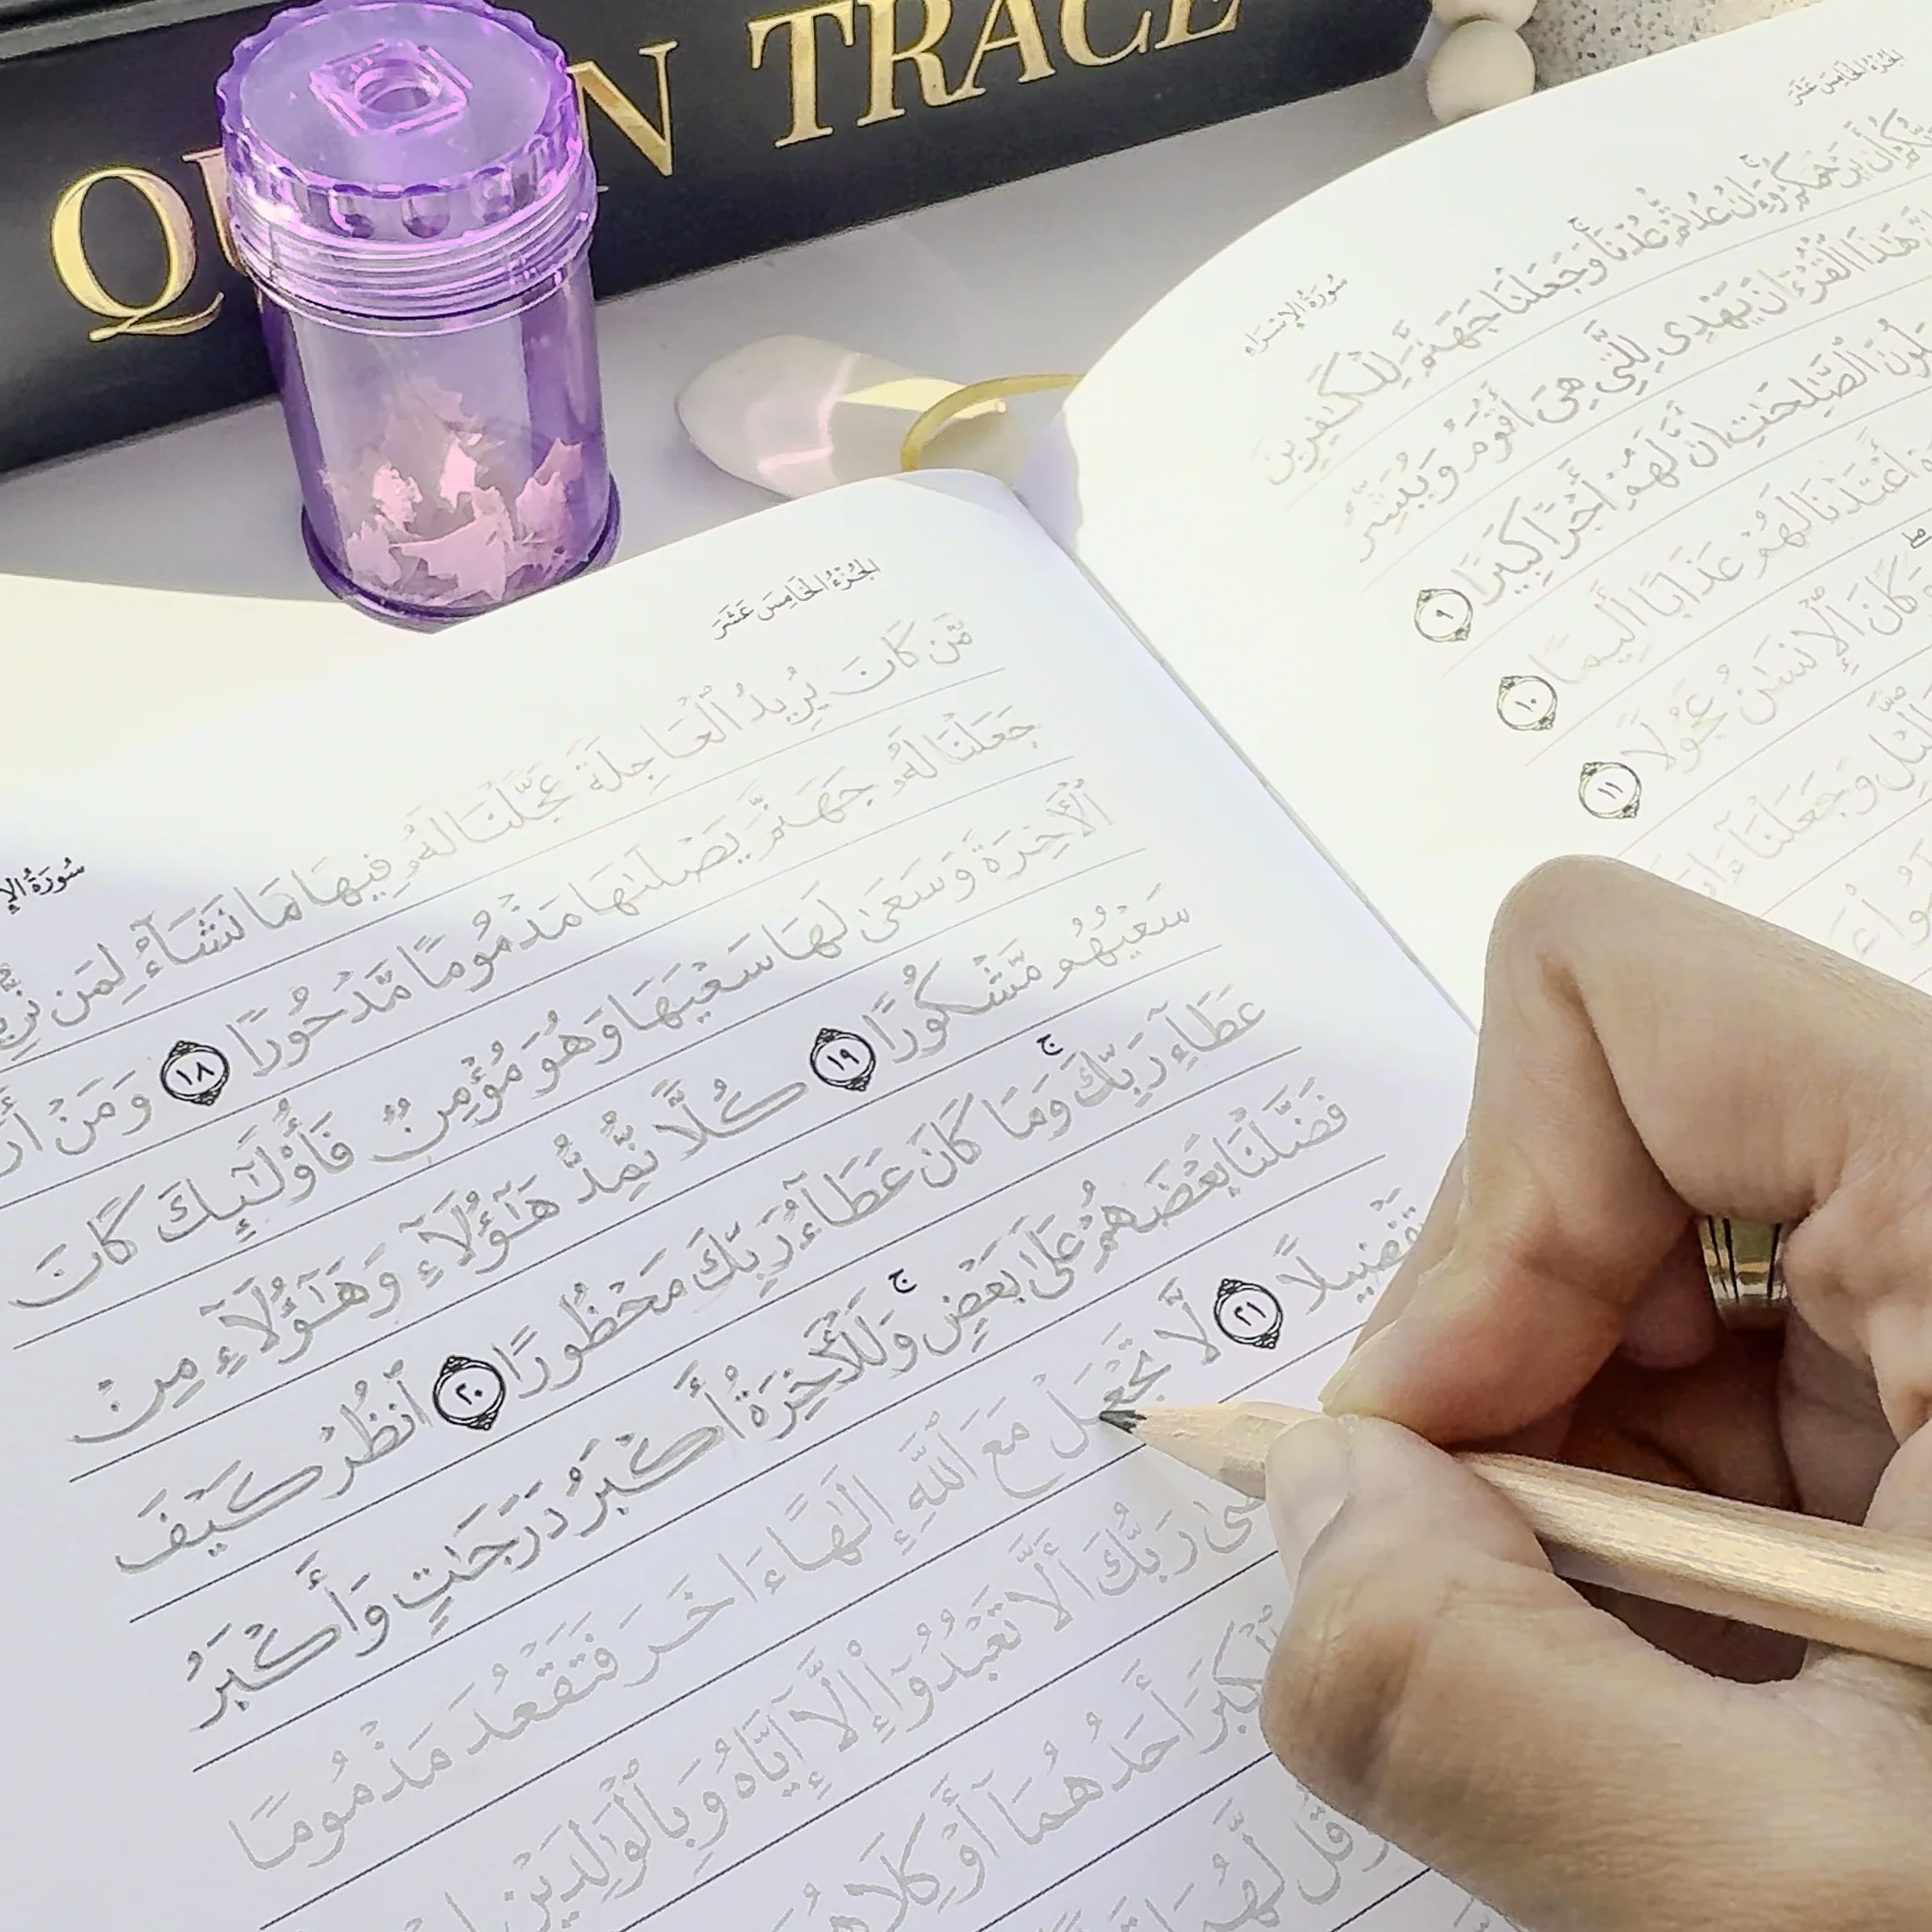 QU N TRACE
الجُزْءُ الخَامِسَ عَشَرَ
سُورَةُ الإِسْرَاءِ
وَإِنْ عُدتُّمْ عُدْنَا وَجَعَلْنَا جَهَنَّمَ لِلْكَٰفِرِينَ
هَٰذَا ٱلْقُرْءَانَ يَهْدِى لِلَّتِى هِىَ أَقْوَمُ وَيُبَشِّرُ
ٱلصَّٰلِحَٰتِ أَنَّ لَهُمْ أَجْرًا كَبِيرًا ٩
أَعْتَدْنَا لَهُمْ عَذَابًا أَلِيمًا ١٠
وَكَانَ ٱلْإِنسَٰنُ عَجُولًا ١١
وَجَعَلْنَآ
الجُزْءُ الخَامِسَ عَشَرَ
سُورَةُ
مَّن كَانَ يُرِيدُ ٱلْعَاجِلَةَ عَجَّلْنَا لَهُۥ فِيهَا مَا نَشَآءُ لِمَن
جَعَلْنَا لَهُۥ جَهَنَّمَ يَصْلَىٰهَا مَذْمُومًا مَّدْحُورًا ١٨ وَمَنْ
ٱلْءَاخِرَةَ وَسَعَىٰ لَهَا سَعْيَهَا وَهُوَ مُؤْمِنٌ فَأُو۟لَٰٓئِكَ كَانَ
سَعْيُهُم مَّشْكُورًا ١٩ كُلًّا نُّمِدُّ هَٰٓؤُلَآءِ وَهَٰٓؤُلَآءِ مِنْ
عَطَآءِ رَبِّكَ ۚ وَمَا كَانَ عَطَآءُ رَبِّكَ مَحْظُورًا ٢٠ ٱنظُرْ كَيْفَ
فَضَّلْنَا بَعْضَهُمْ عَلَىٰ بَعْضٍ ۚ وَلَلْءَاخِرَةُ أَكْبَرُ دَرَجَٰتٍ وَأَكْبَرُ
تَفْضِيلًا ٢١ لَّا تَجْعَلْ مَعَ ٱللَّهِ إِلَٰهًا ءَاخَرَ فَتَقْعُدَ مَذْمُومًا
رَبُّكَ أَلَّا تَعْبُدُوٓا۟ إِلَّآ إِيَّاهُ وَبِٱلْوَٰلِدَيْنِ
ٱلْكِبَرَ أَحَدُهُمَآ أَوْ كِلَاهُمَا